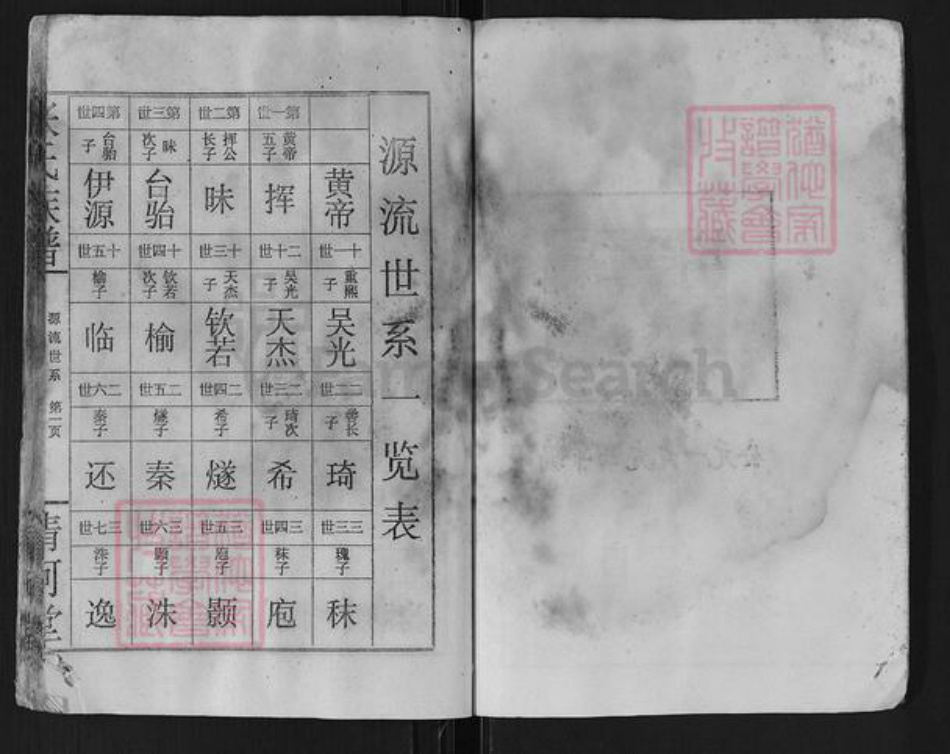 源流世系一览表
黄帝
第一世 黄帝五子 挥
第二世 挥公长子 昧
第三世 昧次子 台骀
第四世 台骀子 伊源
十一世 重熙子 吴光
十二世 吴光子 天杰
十三世 天杰子 钦若
十四世 钦若次子 榆
十五世 榆子 临
二二世 善长子 琦
二三世 琦次子 希
二四世 希子 燧
二五世 燧子 秦
二六世 秦子 还
三三世 瑰子 秣
三四世 秣子 庖
三五世 庖子 颢
三六世 颢子 洙
三七世 洙子 逸
张氏族谱
源流世系 第一页
清河堂
Search